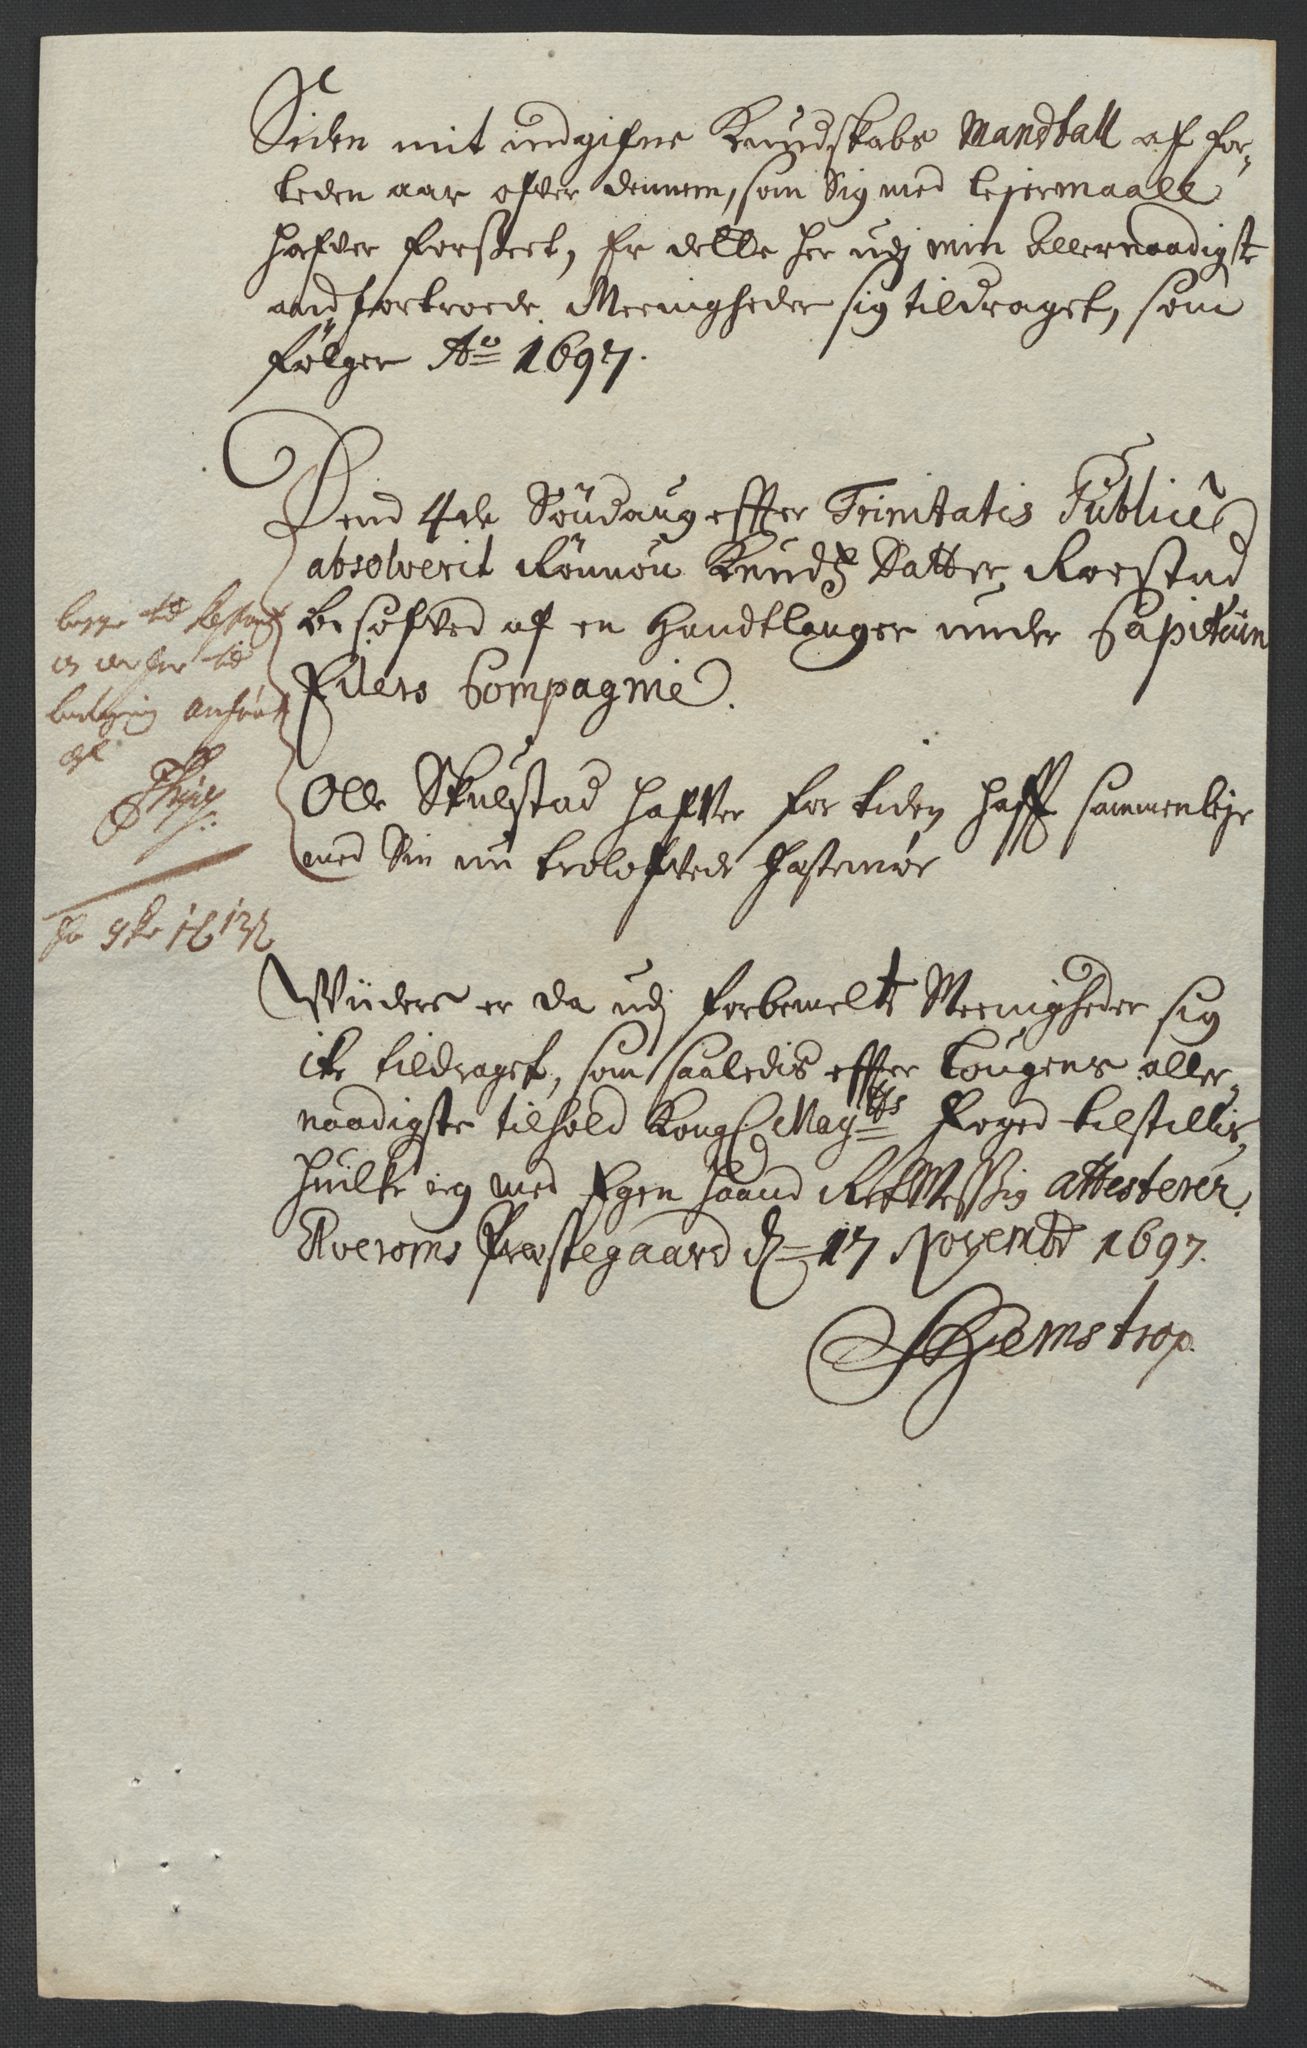 Siden mit indgifne Kundskabs Mandtall af for-
leden aar ofver dennem, som Sig med lejermaall
hafver forseet, Er dette her udj min Allernaadigst
anfortroede Meenigheder sig tildraget, som
følger Ao 1697.
Dend 4de Søndaug effter Trinitatis Publicè
absolverit Rønnou Knudß Datter Roestad
besofved af en Handtlanger under Capitain
Eilers Compagnie.
Olle Skulstad hafver for tiden hafft sammenleje
med Sin nu trolofvede fæstemøe
begge
Wiiders er da udj forbemelte Meenigheder sig
ike tildraget, som saaledis effter Lougens aller-
naadigste tilhold Kongl. Maytts Foged tilstillis,
huilke ieg med Egen haand RetMessig attesterer.
Præstegaard d. 17 Novembr 1697.
Hemstrop.